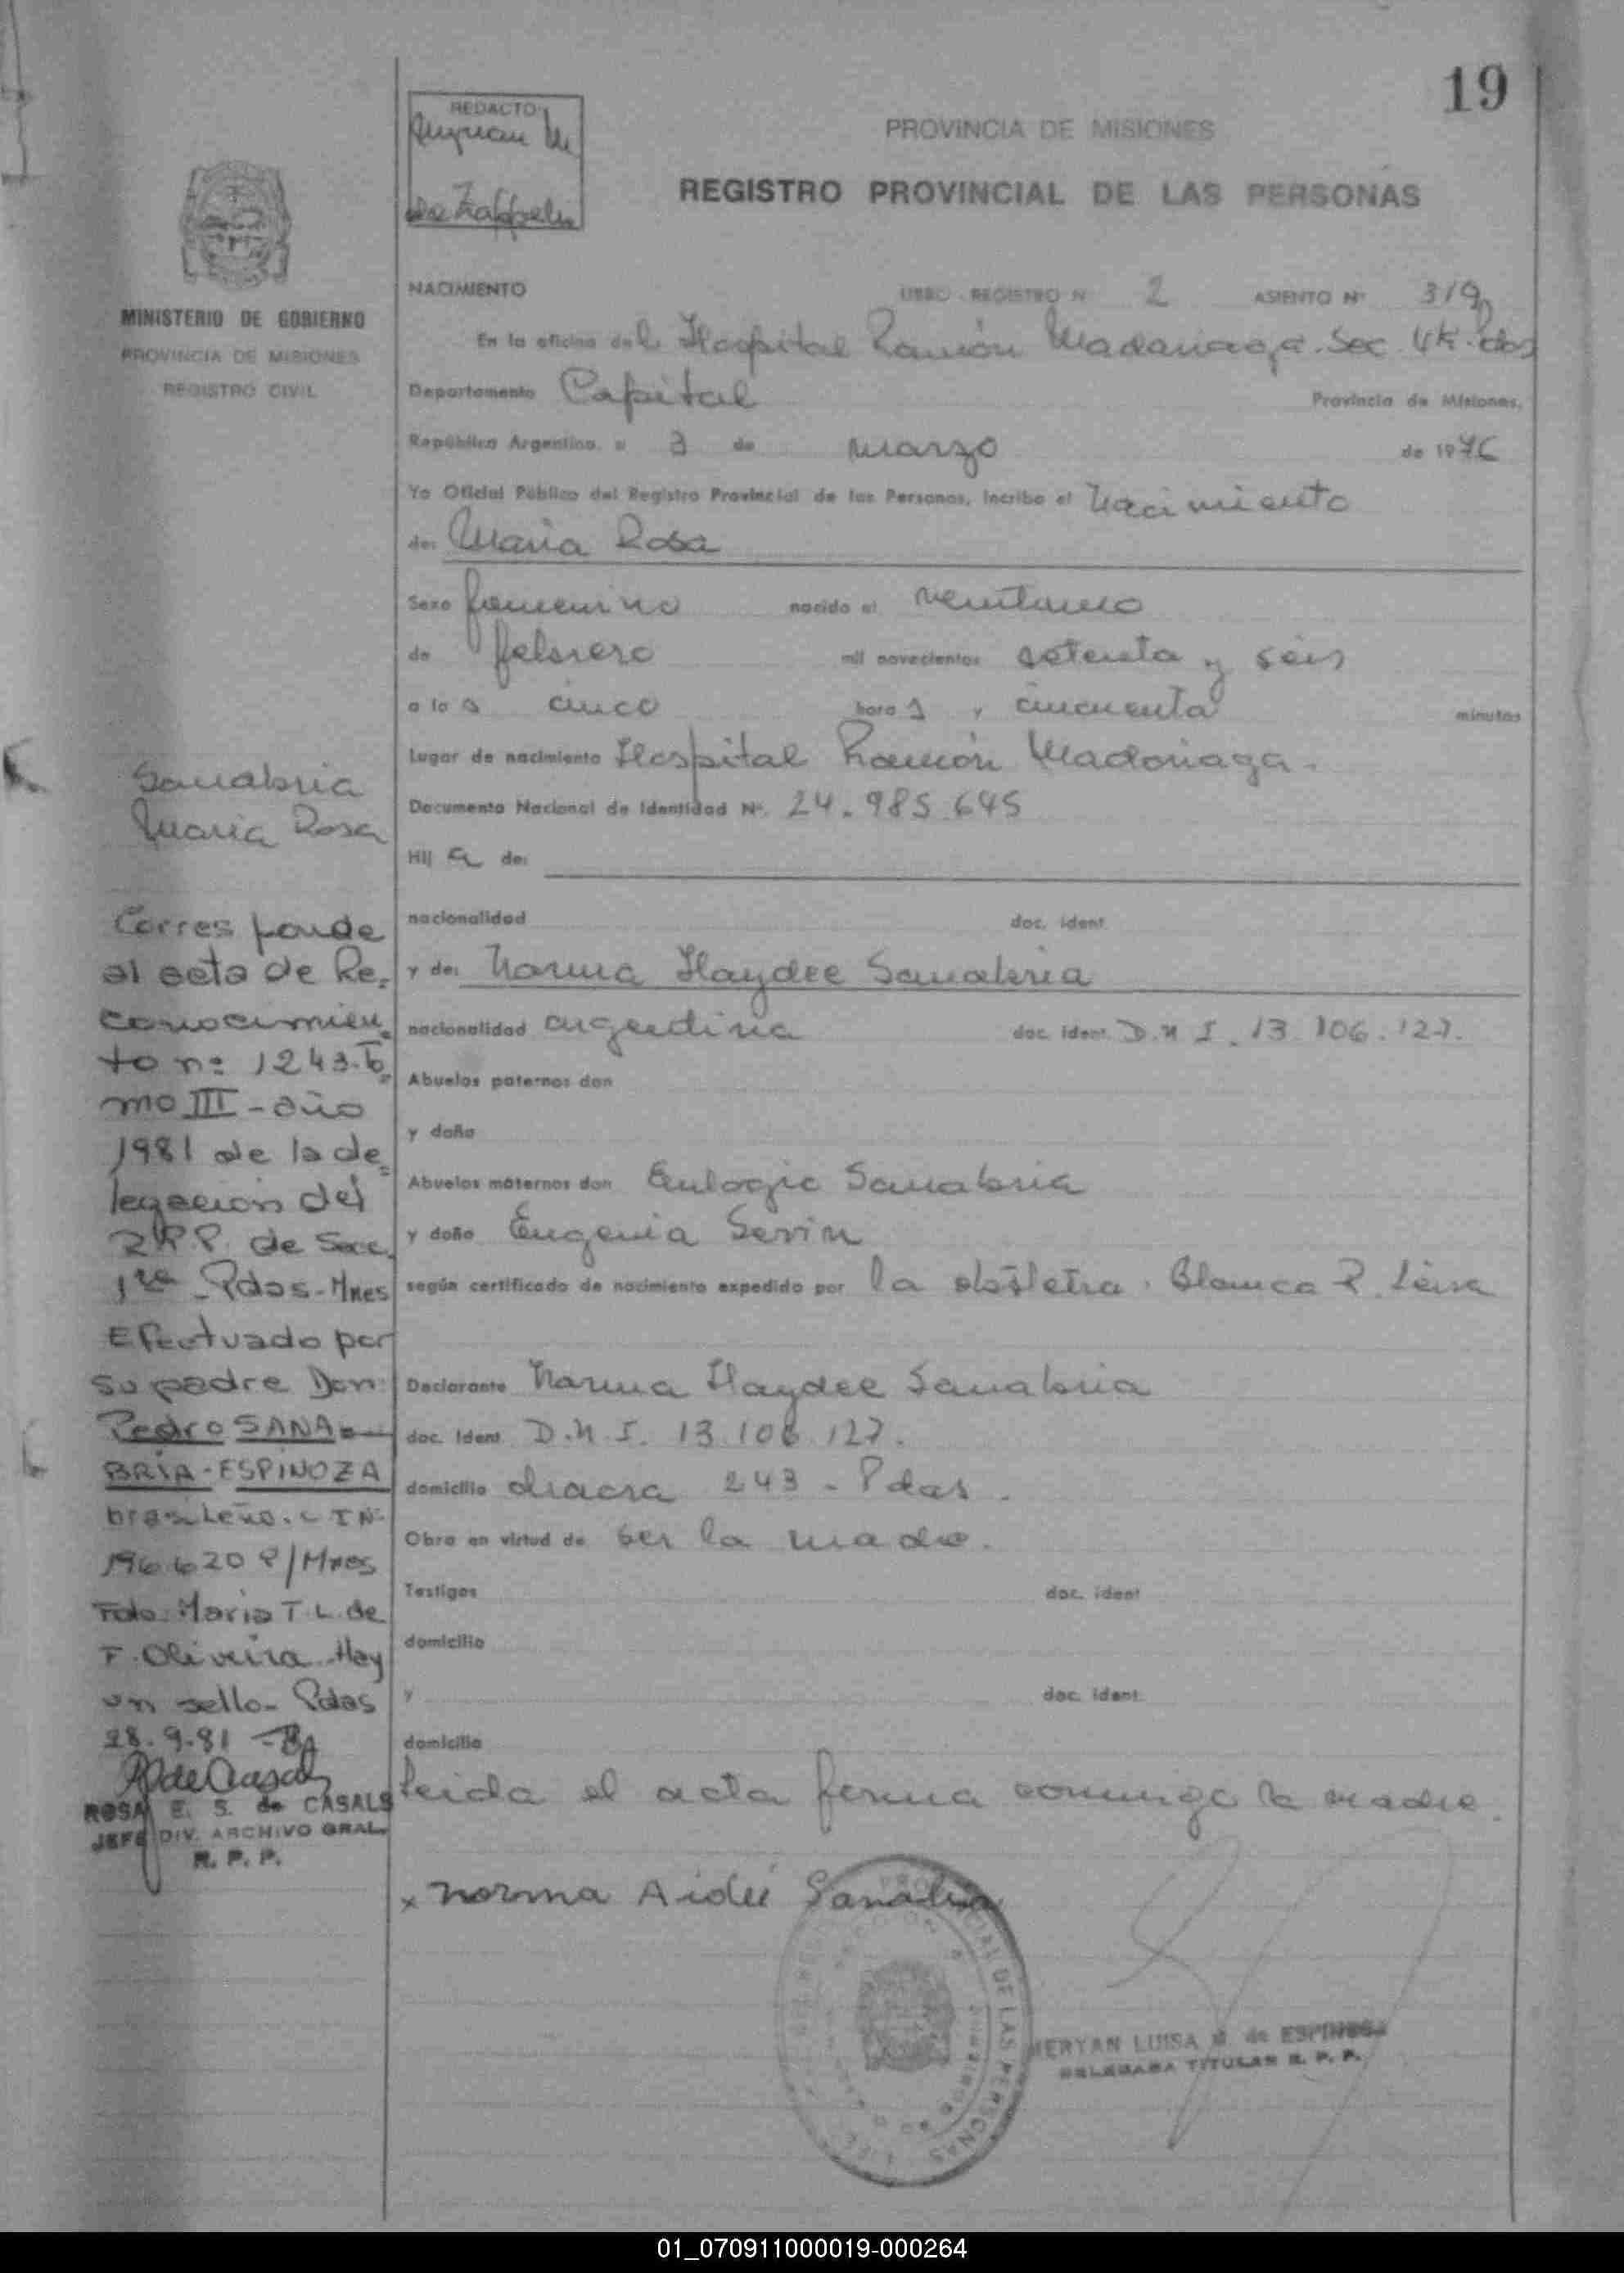 19
REDACTO:
PROVINCIA DE MISIONES
REGISTRO PROVINCIAL DE LAS PERSONAS
MINISTERIO DE GOBIERNO
PROVINCIA DE MISIONES
REGISTRO CIVIL
NACIMIENTO LIBRO REGISTRO N° 2 ASIENTO N° 319
En la oficina del Hospital Ramón Madariaga. Sec. 4ta. Pdas
Departamento Capital Provincia de Misiones,
República Argentina, a 3 de marzo de 1976
Yo Oficial Público del Registro Provincial de las Personas, inscribo el Nacimiento
de: Maria Rosa
Sexo femenino nacido el veintiuno
de febrero mil novecientos setenta y seis
a las cinco horas y cincuenta minutos
Lugar de nacimiento Hospital Ramón Madariaga.
Documento Nacional de Identidad N° 24.985.645
Hija de:
nacionalidad doc. ident.
y de: Norma Haydee Sanabria
nacionalidad argentina doc. ident. D.N.I. 13.106.127.
Abuelos paternos don
y doña
Abuelos maternos don Eulogio Sanabria
y doña Eugenia
según certificado de nacimiento expedido por la obstetra. Blanca
Declarante Norma Haydee Sanabria
doc. ident. D.N.I. 13.106.127.
domicilio chacra 243 - Pdas.
Obra en virtud de ser la madre.
Testigos doc. ident.
domicilio
y doc. ident.
domicilio
Leida el acta firma conmigo la madre.
x Norma Aideé Sanabria
MERYAN LUISA M. de ESPINOSA
DELEGADA TITULAR R. P. P.
Sanabria
Maria Rosa
Corresponde
al acta de Re=
conocimien=
to nº 1243-To=
mo III - año
1981 de la de=
legación del
R.P.P. de Secc.
1ra - Pdas - Mnes
Efectuado por
su padre Don:
Pedro SANA=
BRIA-ESPINOZA
brasileño. C I Nº
196.620 P/Mnes
Fdo. Maria T. L. de
F. Oliveira - Hay
un sello - Pdas
28.9.81
ROSA E. S. de CASALS
JEFE DIV. ARCHIVO GRAL.
R. P. P.
01_070911000019-000264